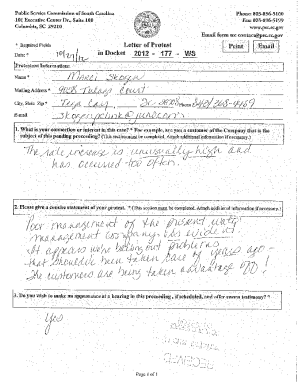 Public Service Commission of South Carolina
101 Executive Center Dr., Suite 100
Columbia, SC 29210
Phone: 803-896-5100
Fax: 803-896-5199
www.psc.sc.gov
Email form to: contact@psc.sc.gov
* Required Fields
Letter of Protest
Print Email
Date *
in Docket 2012 - 177 - WS
Protestant Information:
Name *
Mailing Address * Court
City, State Zip * Tega Cay, Phone
E-mail
1. What is your connection or interest in this case? * For example, are you a customer of the Company that is the
subject of this pending proceeding? (This section must be completed. Attach additional information if necessary.)
The rate increase is unusually high and
has occurred too often.
2. Please give a concise statement of your protest. * (This section must be completed. Attach additional information if necessary.)
Poor management of the present water
management company is evident.
It appears we're problems
that should've been taken care of years ago -
The customers are being taken advantage of!
3. Do you wish to make an appearance at a hearing in this proceeding, if scheduled, and offer sworn testimony? *
Yes
RECEIVED
Page 1 of 1